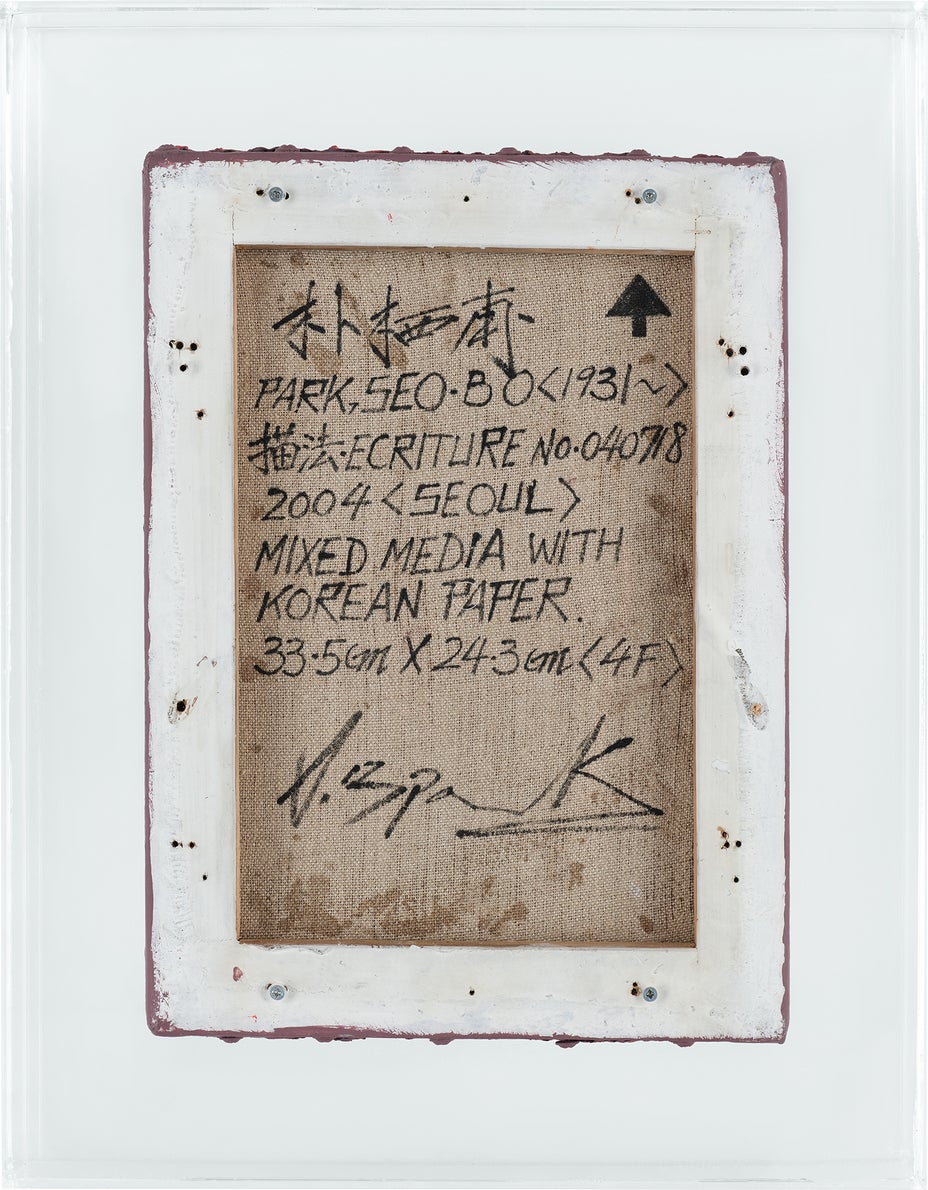 朴栖甫
PARK, SEO-BO<1931~>
描法·ECRITURE No.040718
2004<SEOUL>
MIXED MEDIA WITH
KOREAN PAPER.
33.5cm X 24.3cm<4F>